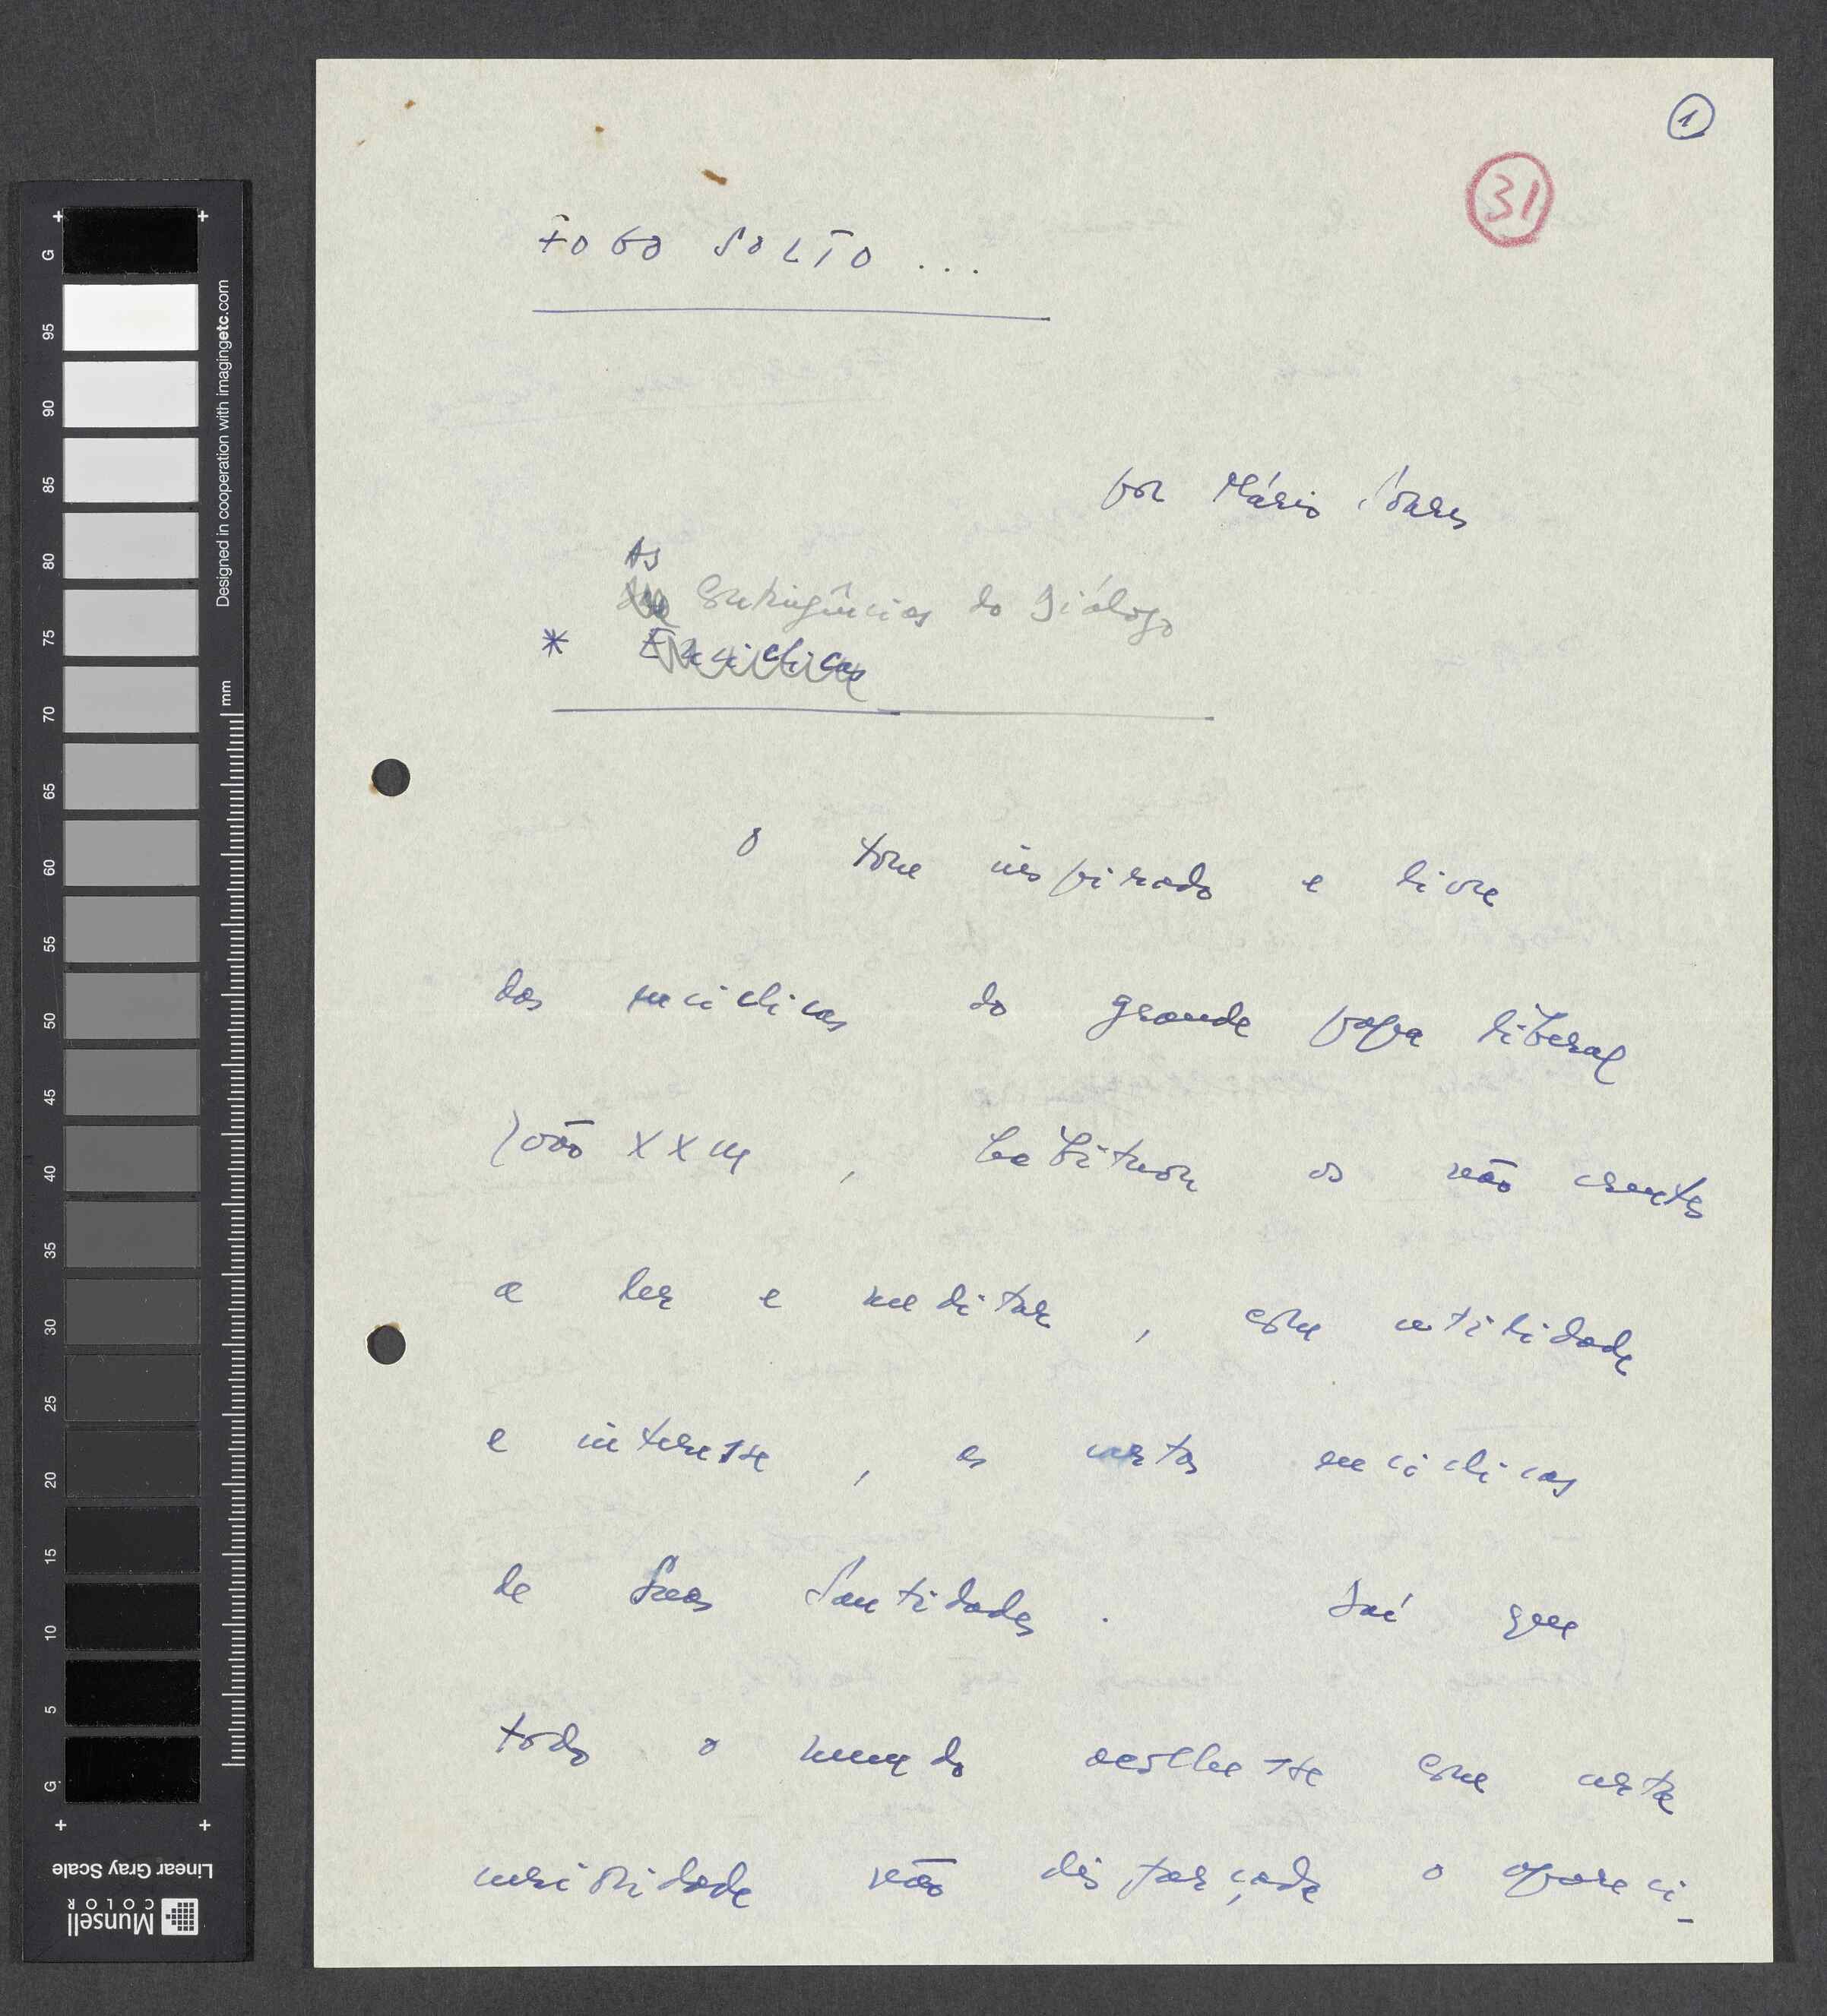 1
31
FOGO SOLTO ...
por Mário Soares
As
Exigências do Diálogo
* Encíclicas
O tom inspirado e livre
das encíclicas do grande papa liberal
João XXIII, habituou os não crentes
a ler e meditar, com utilidade
e interesse, as cartas encíclicas
de Suas Santidades. Daí que
todo o mundo acolhesse com certa
curiosidade não disfarçada o apareci-
G 95 90 85 80 75 70 65 60 55 50 45 40 35 30 25 20 15 10 5 G
mm
Designed in cooperation with imagingetc.com
Linear Gray Scale
Munsell
COLOR